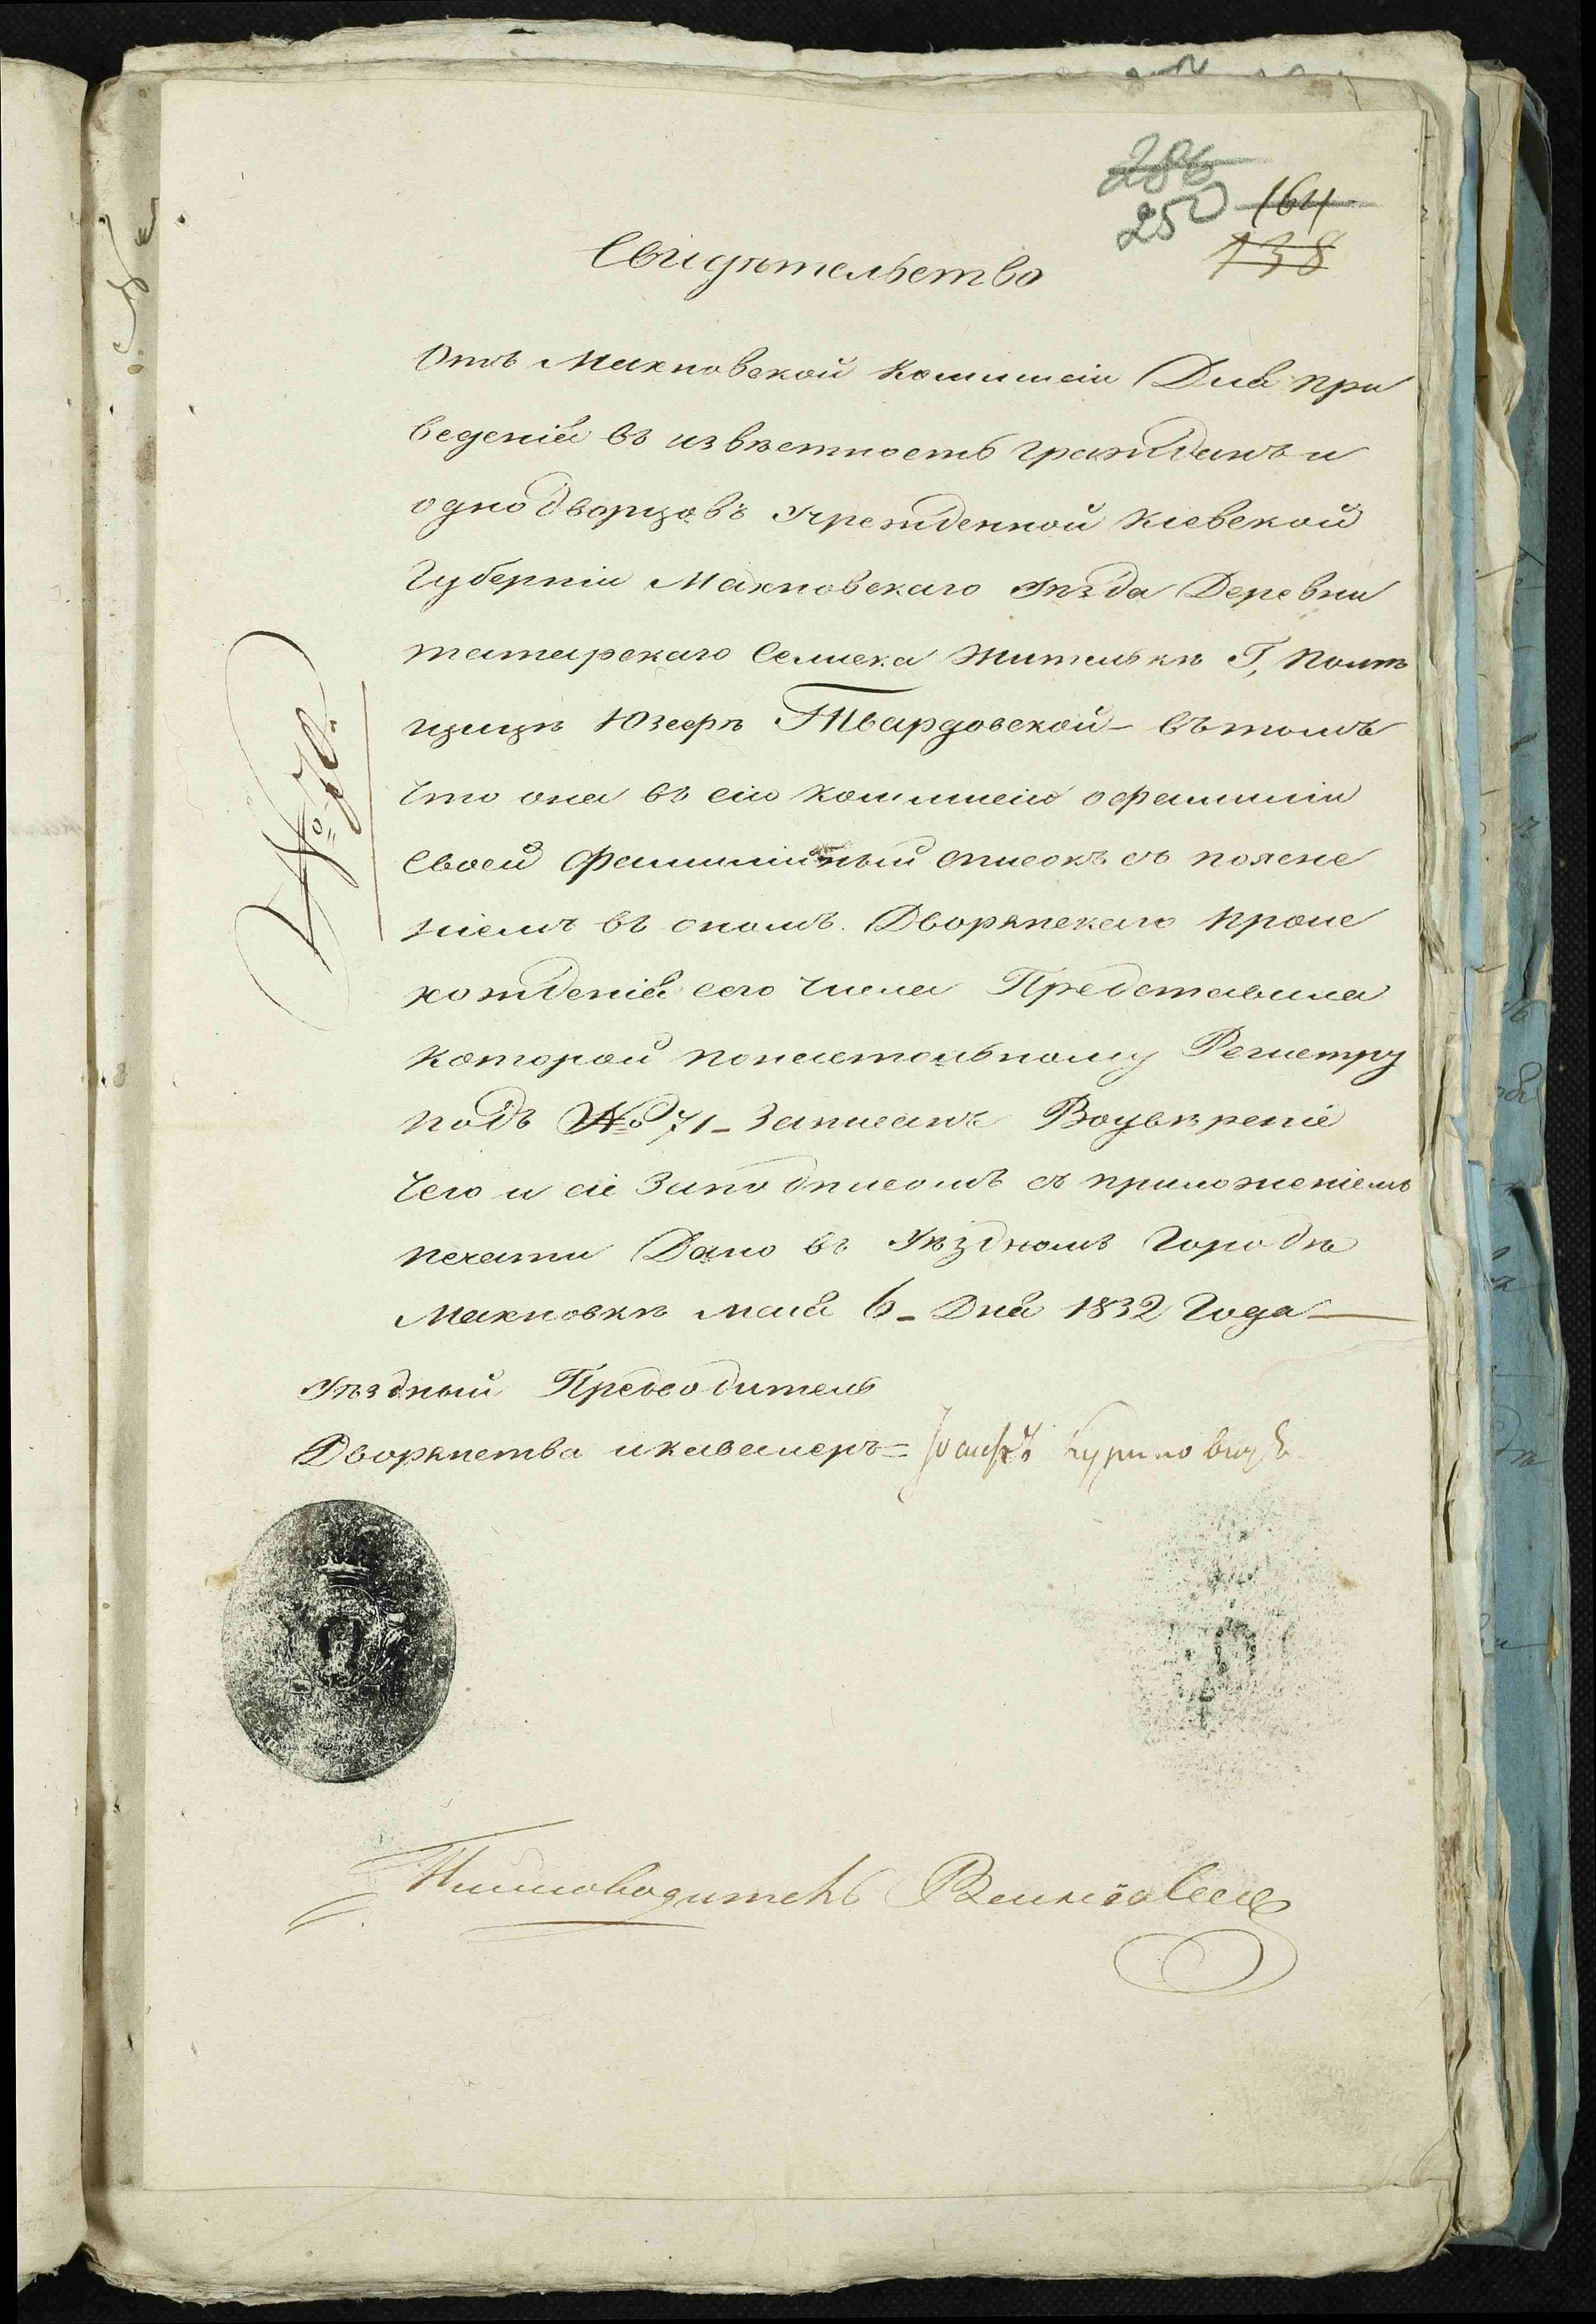 286
250 164
138
Свидѣтельство
Отъ Махновской Коммисіи Для при
веденія въ извѣстность гражданъ и
однодворцовъ учрежденной Кіевской
Губерніи Махновскаго Уѣзда Деревни
татарскаго Селиска Жительки Г,
цицѣ Юзефѣ Твардовской – въ томъ
Что она въ сію Коммисію о фамиліи
Своей Фамилійный списокъ съ поясне
ніемъ въ ономъ Дворянскаго проис
хожденія сего числа Представила
которой понастольному Регистру
подъ № 71 – Записанъ Воувѣреніе
Чего и сіе Заподписомъ съ приложеніемъ
печати Дано въ Уѣздномъ Городѣ
Махновкѣ маія 6 – Дня 1832 Года —
Уѣздный Предводитель
Дворянства и кавалеръ = Іосифъ Куриловичъ
№ 70.
Письмоводитель